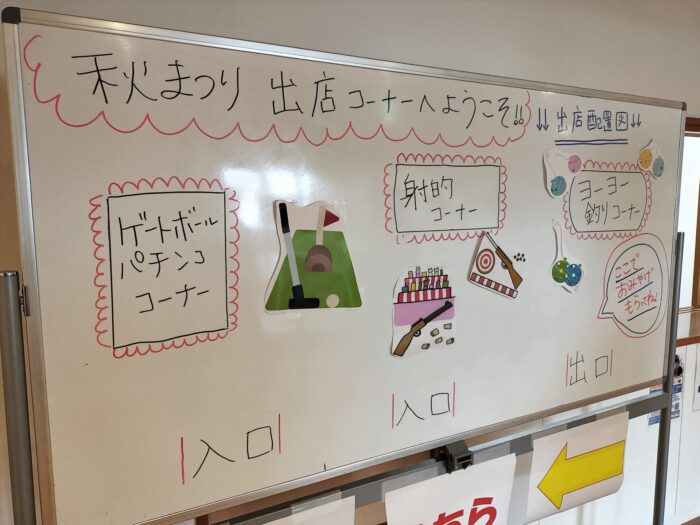 秋まつり 出店コーナーへようこそ!!
↓↓出店配置図↓↓
ゲートボール
パチンコ
コーナー
射的
コーナー
ヨーヨー
釣りコーナー
ここで
おみやげ
もらってね♪
入口
入口
出口
ちら